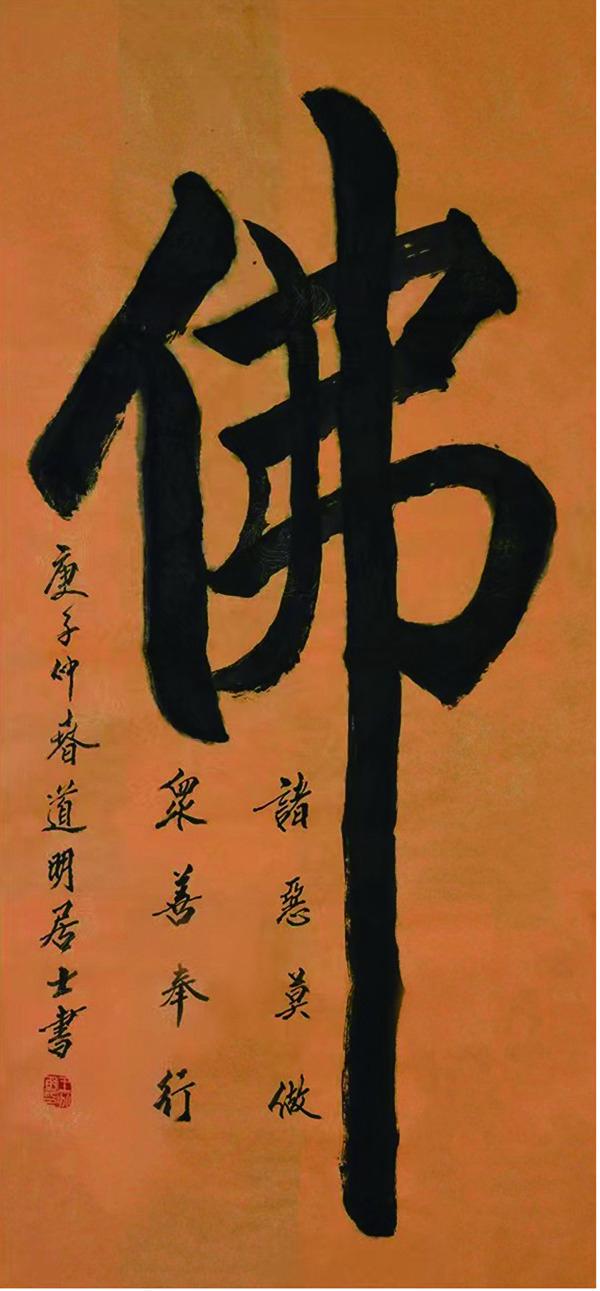 佛
諸惡莫做
眾善奉行
庚子仲春道明居士書